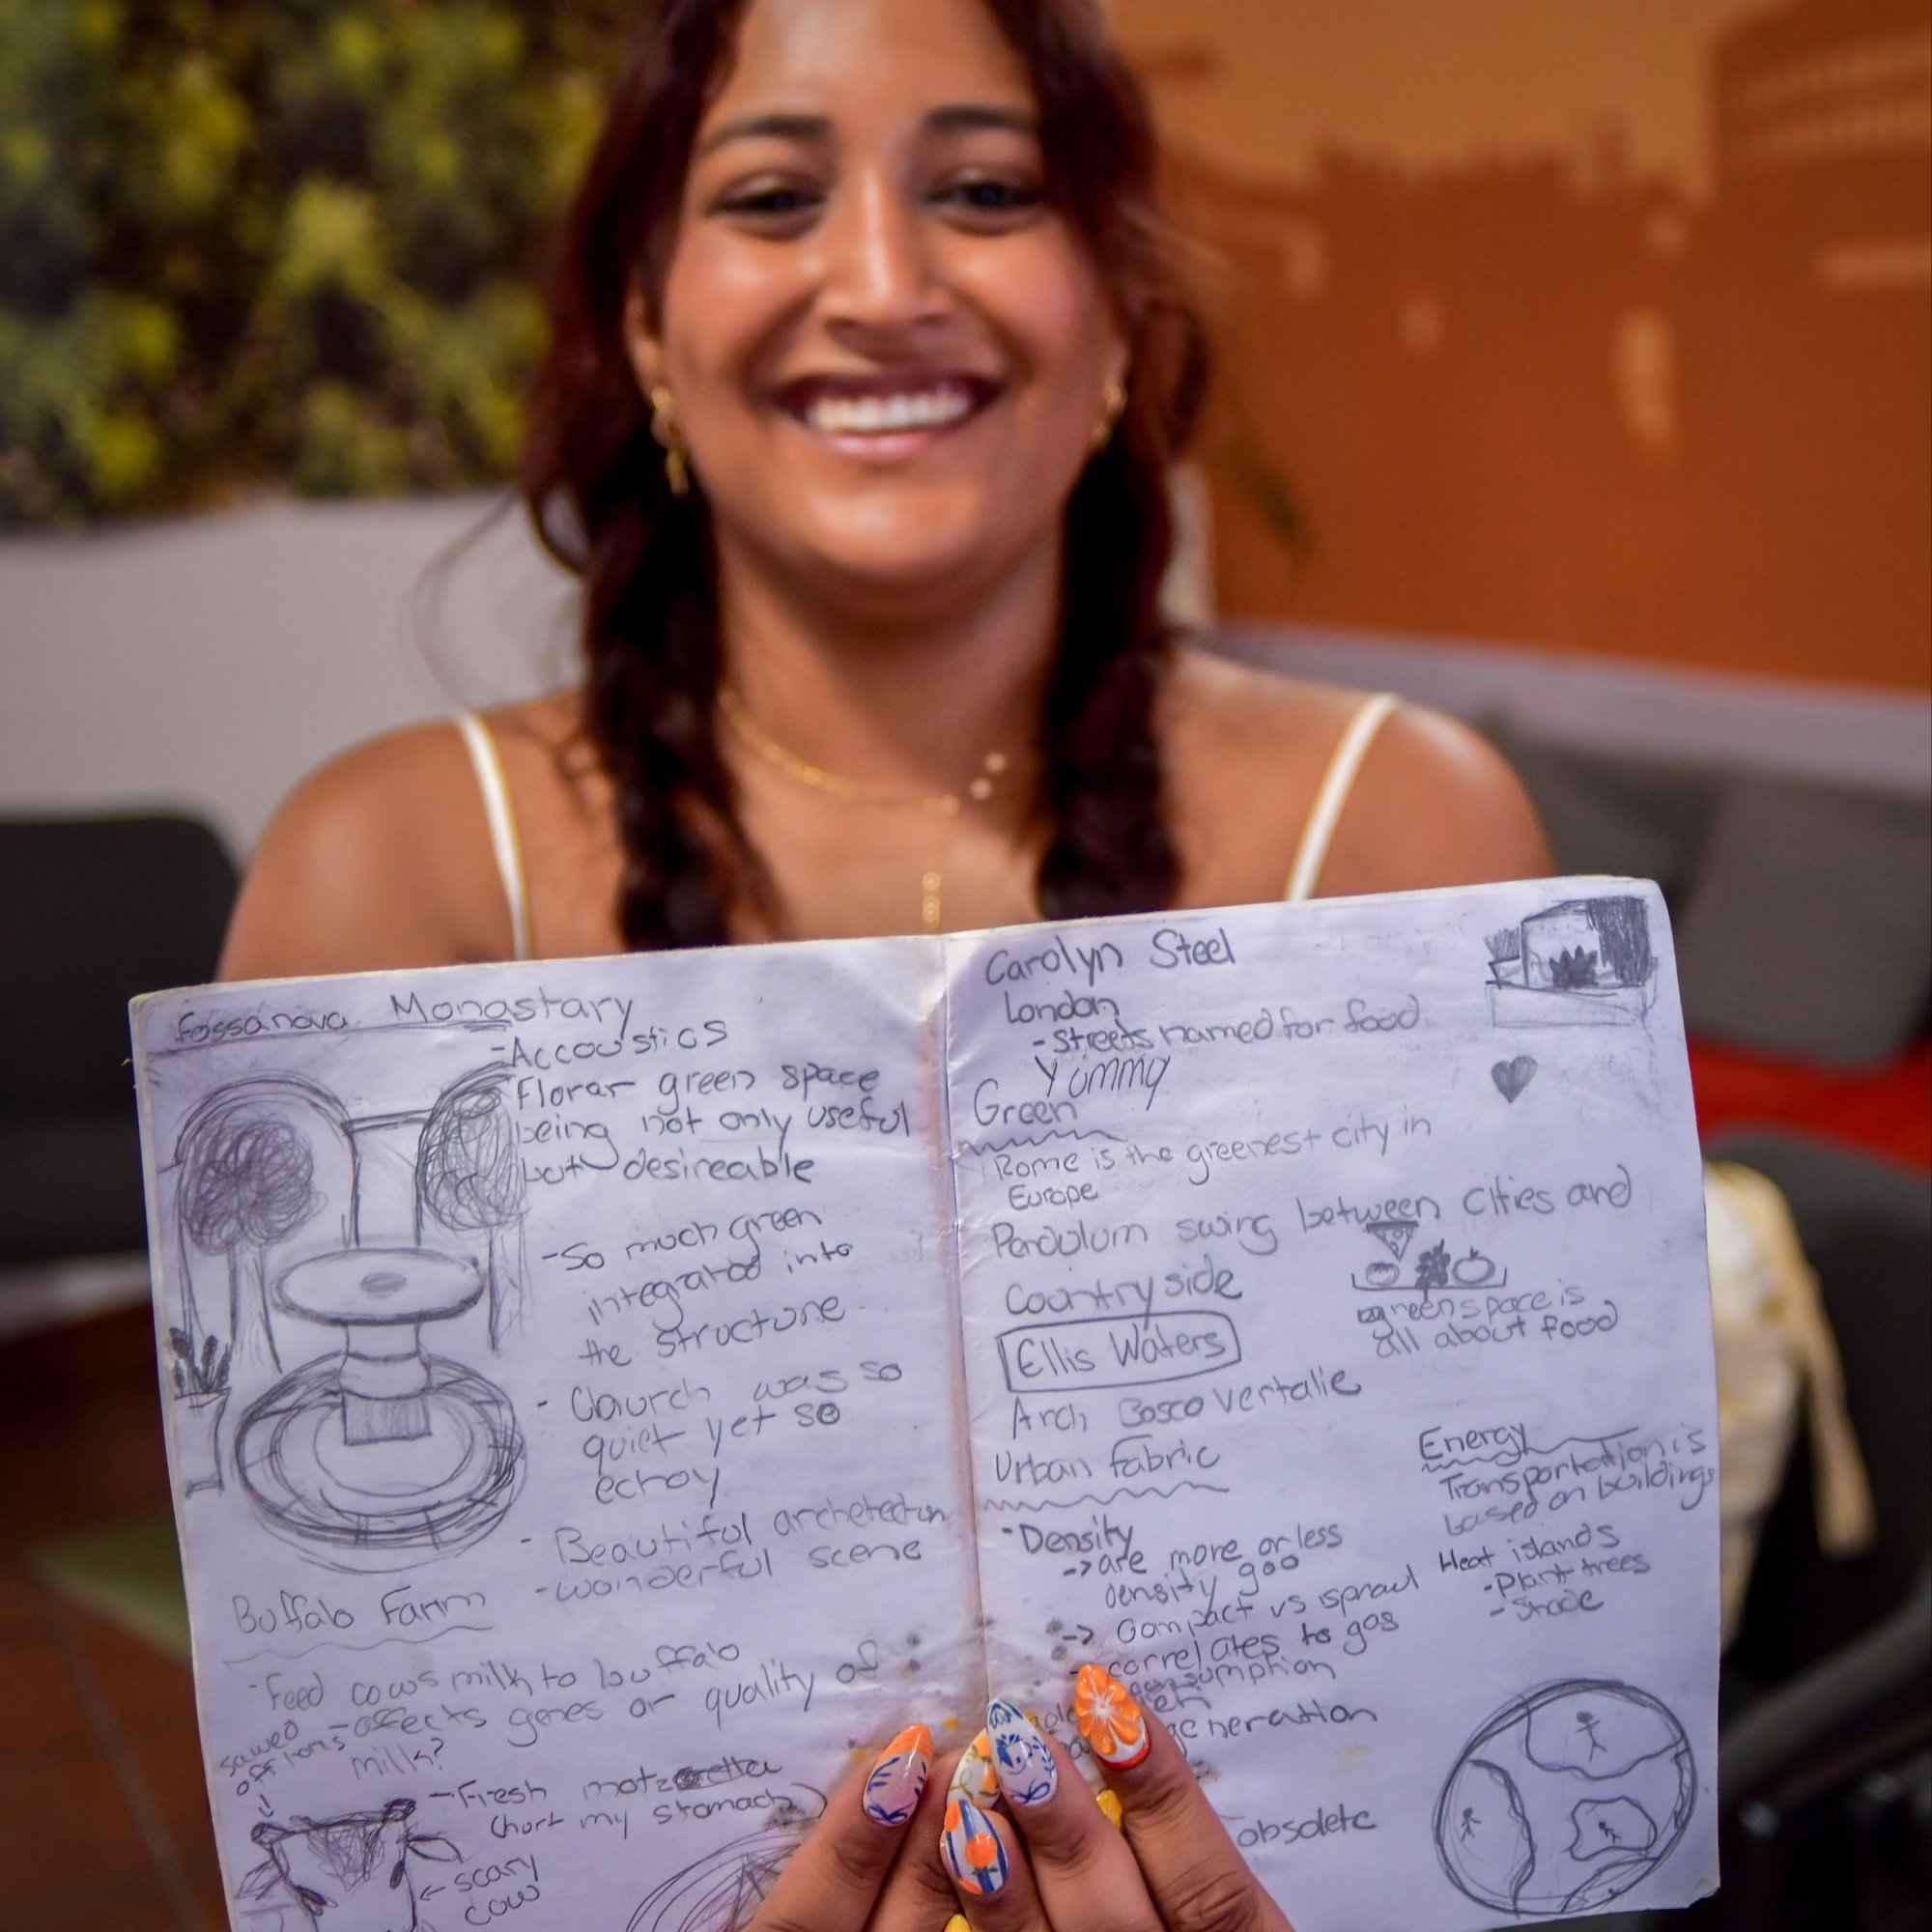 Fossanova Monastary
-Accoustics
Florar green space
being not only useful
but desireable
-So much green
integrated into
the structure
- Church was so
quiet yet so
echoy
- Beautiful
-wonderful scene
Buffalo Farm
-Feed cows milk to buffalo
-affects genes or quality of
milk?
sawed
off
-Fresh
(hurt my stomach)
← scary
cow
Carolyn Steel
London
-Streets named for food
Yummy
Green
Rome is the greenest city in
Europe
Pendulum swing between cities and
Countryside
greenspace is
all about food
Ellis Waters
Arch Bosco vertalie
Urban Fabric
-Density
->are more or less
density goo
-> Compact vs sprawl
-correlates to gas
Energy
Transportation is
based on buildings
Heat islands
-Plant trees
-Shade
obsolete